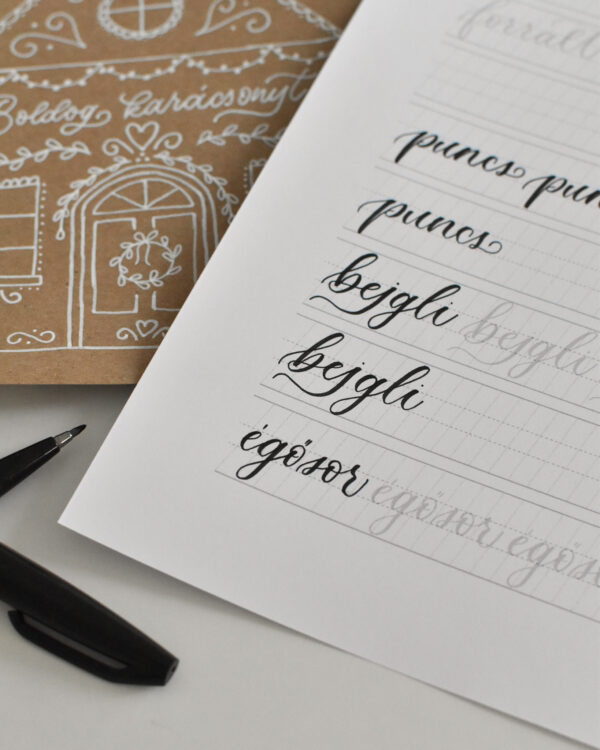 Boldog karácsonyt
forralt
puncs
puncs
bejgli bejgli
bejgli
égősor égősor